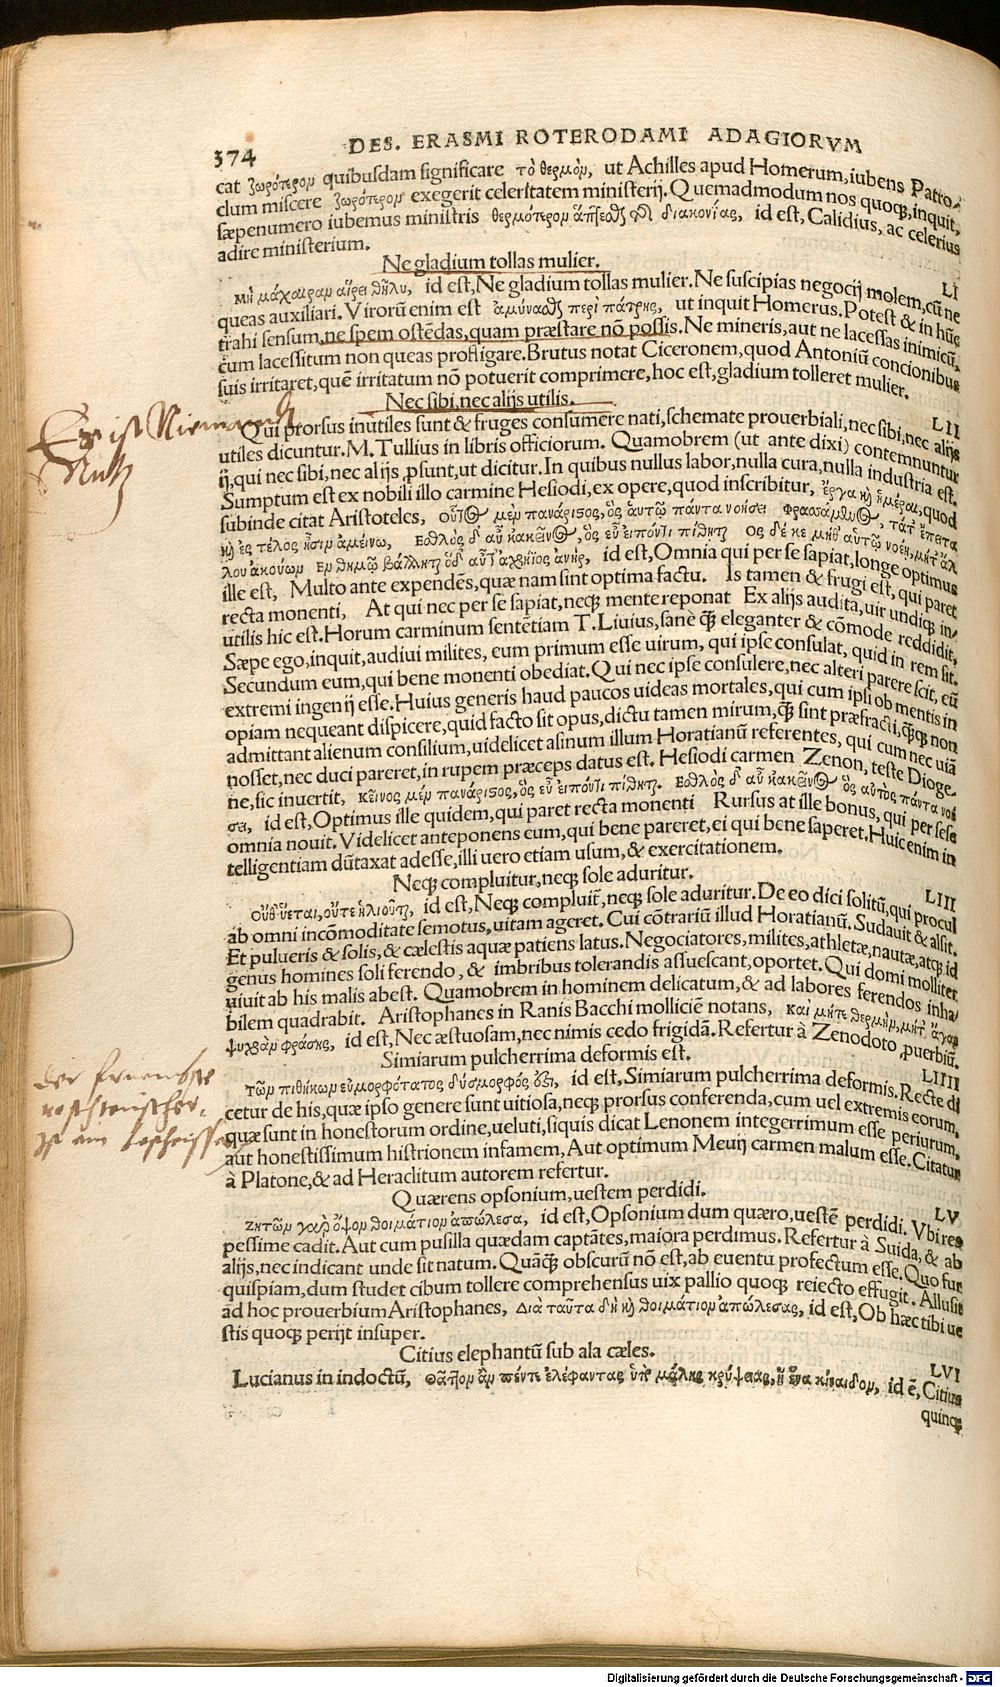 374 DES. ERASMI ROTERODAMI ADAGIORVM
cat ζωρότερον quibusdam significare τὸ θερμὸν, ut Achilles apud Homerum, iubens Patro-
clum miscere ζωρότερον exegerit celeritatem ministerij. Quemadmodum nos quoq;, inquit,
sæpenumero iubemus ministris θερμότερον διακονίας, id est, Calidius, ac celerius
adire ministerium.
Ne gladium tollas mulier. LI
Μὴ μάχαιραν αἶρει θῆλυ, id est, Ne gladium tollas mulier. Ne suscipias negocij molem, cũ ne
queas auxiliari. Virorũ enim est ἀμύναθς περὶ πάτρης, ut inquit Homerus. Potest & in hũc
trahi sensum, ne spem ostẽdas, quam præstare nõ possis. Ne mineris, aut ne lacessas inimicũ,
cum lacessitum non queas profligare. Brutus notat Ciceronem, quod Antoniũ concionibus
suis irritaret, quẽ irritatum nõ potuerit comprimere, hoc est, gladium tolleret mulier.
Nec sibi, nec alijs utilis. LII
Er ist Niemandt
Nutz
Qui prorsus inutiles sunt & fruges consumere nati, schemate prouerbiali, nec sibi, nec alijs
utiles dicuntur. M. Tullius in libris officiorum. Quamobrem (ut ante dixi) contemnuntur
ij, qui nec sibi, nec alijs ꝓsunt, ut dicitur. In quibus nullus labor, nulla cura, nulla industria est.
Sumptum est ex nobili illo carmine Hesiodi, ex opere, quod inscribitur, ἔργα κὴ ἡμέραι, quod
subinde citat Aristoteles, οὗτος μὲν πανάριστος, ὃς αὐτῷ πάντα νοήσει φρασσάμενος, τάτ' ἔπειτα
κὴ ἐς τέλος ἦσιν ἀμείνω, Εσθλὸς δ' αὖ κακεῖνος, ὃς εὖ εἰπόντι πίθηται Ος δέ κε μήθ' αὑτῷ νοέῃ, μήτ' ἄλ
λου ἀκούων Εν θυμῷ βάλληται ὅδ' αὖτ' ἀχρήϊος ἀνήρ, id est, Omnia qui per se sapiat, longe optimus
ille est, Multo ante expendẽs, quæ nam sint optima factu. Is tamen & frugi est, qui paret
recta monenti, At qui nec per se sapiat, neq; mente reponat Ex alijs audita, uir undiq; in-
utilis hic est. Horum carminum sentẽtiam T. Liuius, sanè q̃ꝫ eleganter & cõmode reddidit,
Sæpe ego, inquit, audiui milites, eum primum esse uirum, qui ipse consulat, quid in rem sit.
Secundum eum, qui bene monenti obediat. Qui nec ipse consulere, nec alteri parere scit, eũ
extremi ingenij esse. Huius generis haud paucos uideas mortales, qui cum ipsi ob mentis in
opiam nequeant dispicere, quid facto sit opus, dictu tamen mirum, q̃ꝫ sint præfracti, q̃ꝫq; non
admittant alienum consilium, uidelicet asinum illum Horatianũ referentes, qui cum nec uiã
nosset, nec duci pareret, in rupem præceps datus est. Hesiodi carmen Zenon, teste Dioge-
ne, sic inuertit, κεῖνος μὲν πανάριστος, ὃς εὖ εἰπόντι πίθηται. Εσθλὸς δ' αὖ κακεῖνος ὃς αὐτὸς πάντα νοή
σει, id est, Optimus ille quidem, qui paret recta monenti Rursus at ille bonus, qui per sese
omnia nouit. Videlicet anteponens eum, qui bene pareret, ei qui bene saperet. Huic enim in
telligentiam dũtaxat adesse, illi uero etiam usum, & exercitationem.
Neq; compluitur, neq; sole aduritur. LIII
οὔθ' ὕεται, οὔτε ἡλιοῦται, id est, Neq; compluiť, neq; sole aduritur. De eo dici solitũ, qui procul
ab omni incõmoditate semotus, uitam ageret. Cui cõtrariũ illud Horatianũ. Sudauit & alsit.
Et pulueris & solis, & cælestis aquæ patiens latus. Negociatores, milites, athletæ, nautæ, atq; id
genus homines soli ferendo, & imbribus tolerandis assuescant, oportet. Qui domi molliter
uiuit ab his malis abest. Quamobrem in hominem delicatum, & ad labores ferendos inha-
bilem quadrabit. Aristophanes in Ranis Bacchi molliciẽ notans, καὶ μήτε θερμὴν, μήτ' ἄγαν
ψυχρὰν φράσῃς, id est, Nec æstuosam, nec nimis cedo frigidã. Refertur à Zenodoto ꝓuerbiũ.
Simiarum pulcherrima deformis est. LIIII
τῶν πιθήκων εὐμορφότατος δύσμορφός ὅζι, id est, Simiarum pulcherrima deformis. Recte di
cetur de his, quæ ipso genere sunt uitiosa, neq; prorsus conferenda, cum uel extremis eorum,
quæ sunt in honestorum ordine, ueluti, siquis dicat Lenonem integerrimum esse periurum,
aut honestissimum histrionem infamem, Aut optimum Meuij carmen malum esse. Citatur
à Platone, & ad Heraclitum autorem refertur.
Quærens opsonium, uestem perdidi. LV
ζητῶν γὰρ ὄψον θοιμάτιον ἀπώλεσα, id est, Opsonium dum quæro, uestẽ perdidi. Vbi res
pessime cadit. Aut cum pusilla quædam captãtes, maiora perdimus. Refertur à Suida, & ab
alijs, nec indicant unde sit natum. Quãq̃ꝫ obscurũ nõ est, ab euentu profectum esse. Quo fur
quispiam, dum studet cibum tollere comprehensus uix pallio quoq; reiecto effugit. Allusit
ad hoc prouerbium Aristophanes, Διὰ ταῦτα δὴ κὴ θοιμάτιον ἀπώλεσας, id est, Ob hæc tibi ue
stis quoq; perijt insuper.
Citius elephantũ sub ala cæles. LVI
Lucianus in indoctũ, θᾶττον ἂν πέντε ἐλέφαντας ὑπὸ μάλης κρύψειας, ἢ ἕνα κίναιδον, id ẽ, Citius
quinq;
Digitalisierung gefördert durch die Deutsche Forschungsgemeinschaft - DFG